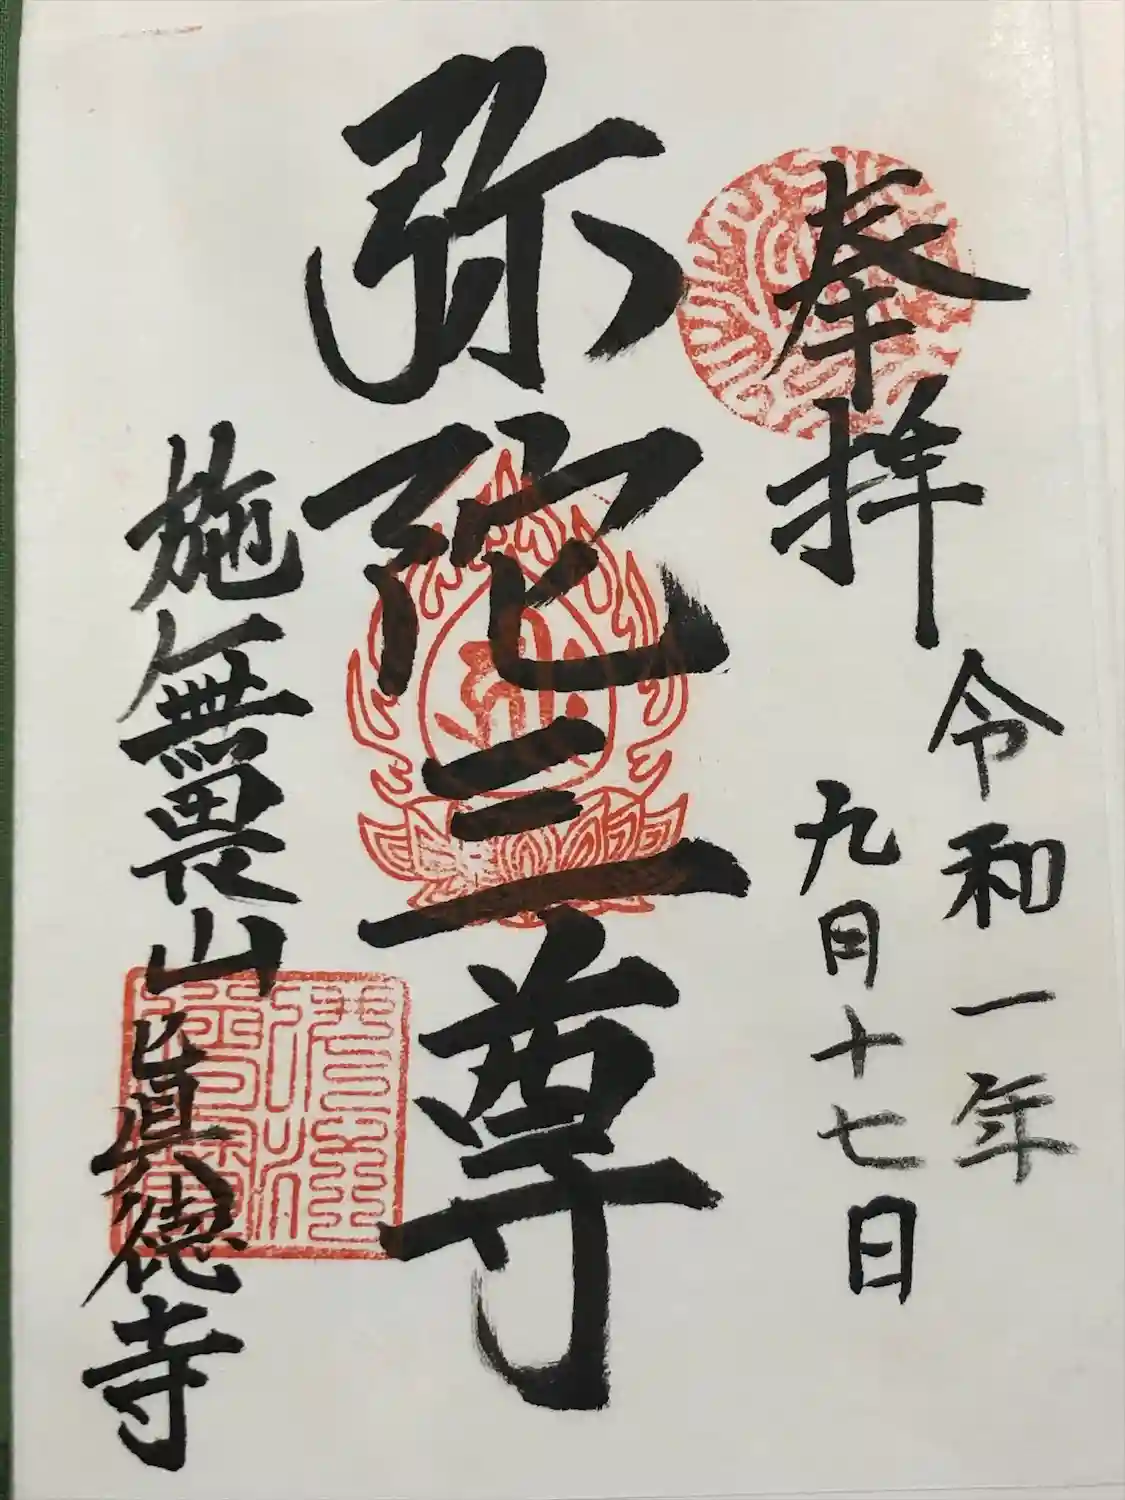 奉拝
令和一年
九月十七日
弥陀三尊
施無畏山
眞德寺